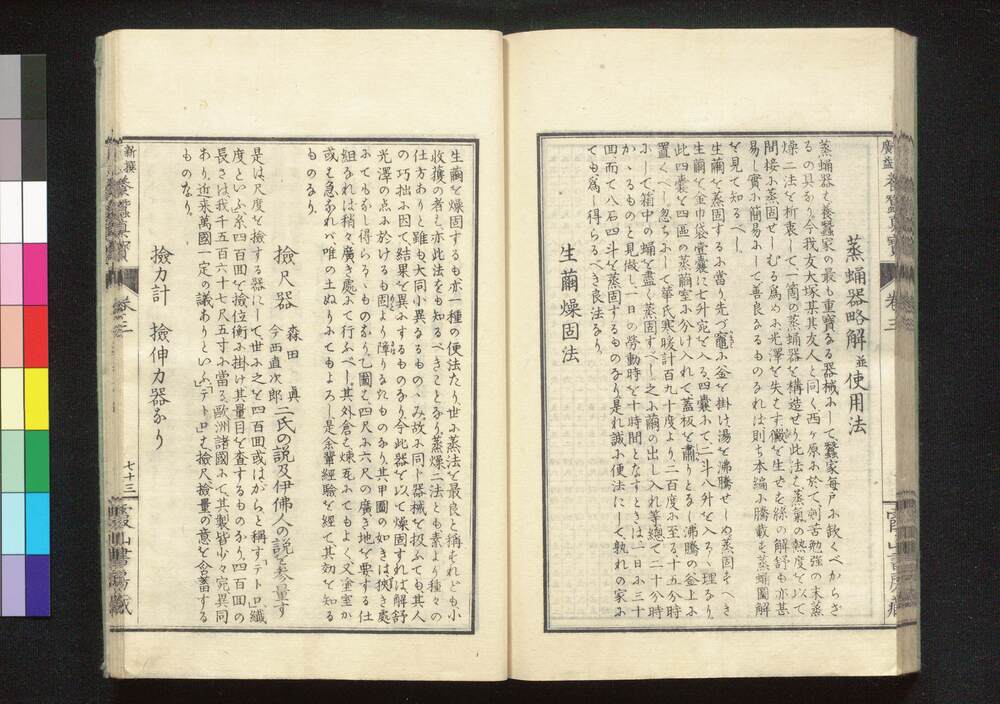 蒸蛹器略解並使用法
蒸蛹器ハ養蠶家の最も重寶なる器械ふして蠶家毎戸ふ欿くべからざ
るの具なり今我友大塚某其友人と同く西ヶ原ふ於て刻苦勉強の末蒸
燥二法を折衷して一箇の蒸蛹器を構造せり此法ハ蒸氣の熱度を以て
間接ふ蒸固せしむる爲め光澤を失はす黴を生せを絲の解舒も亦甚
易し實ふ簡易ふして善良なるものなれは則ち本編ふ騰載も蒸蛹圖解
を見て知るべし
生繭を蒸固するふ當り先づ竈ふ釜を掛け湯を沸騰せしめ蒸固すべき
生繭を金巾袋壹囊に七升宛を入る四囊ふて二斗八升を入るゝ理なり
此四囊を四區の蒸繭室ふ分け入れて蓋板を肅りとなし沸騰の釜上ふ
置くべし忽ちふして華氏寒暖計百九十度より二百度ふ至る十五分時
ふして箱中の蛹を盡く蒸固すべし之ふ繭の出し入れ等總て二十分時
かゝるものと見做し一日の勞動時を十時間となすときは一日ふ三十
回而て八石四斗を蒸固するものなり是れ誠ふ便法にして孰れの家ふ
ても爲し得らるべき良法なり
生繭燥固法
廣益養蠶眞寶
卷三
霞山書房藏
生繭を燥固するも亦一種の便法たり世ふ蒸法を最良と稱もれども小
收穫の者ハ亦此法をも知るべきことなり蒸燥二法とも素より種々の
仕方ありと雖も大同小異なるものゝみ故ふ同ド器械を扱ふても其人
の巧拙ふ因て結果を異ふするものなり今此器を以て燥固すれば解舒
光澤の点ふ於けるも固より障りなたものなり其甲圖の如きは狹き處
ふてもなし得らるゝものなり乙圖ハ四尺ふ六尺の廣き地を要する仕
組なれは稍々廣き處ふて行ふべし其外倉も煉瓦ふてもよく又塗室か
或ハ急なれバ唯の土ぬりふてもよろし是余輩經驗を經て其効を知る
ものなり
撿尺器 森田眞 今西直次郎 二氏の說及伊佛人の說を參量す
是は尺度を撿する器にして世ふ之を四百回或はがらと稱す「テトロ」ハ纎
度といふ系四百回を撿位衡ふ掛け其量目を査するものなり四百回の
長さは我千五百六十七尺五寸ふ當る歐洲諸國ふて其製皆少々宛異同
あり近來萬國一定の議ありといふ「テトロ」ハ撿尺撿量の意を含蓄する
ものなり
撿力計 撿伸力器なり
新撰養蠶眞寶
卷三
七十三
霞山書房藏